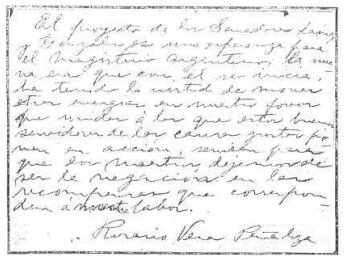 El proyecto de los Senadores Lainez
y González es una esperanza para
el Magisterio Argentino; la
en que con él se inicia,
ha tenido la virtud de mover
otras energías en nuestro favor
que unidas a las que estos buenos
servidores de las causas justas po-
nen en acción, serán para
que los maestros dejemos de
ser la negación en las
recompensas que correspon-
den á nuestra labor.
Rosario Vera Peñaloza